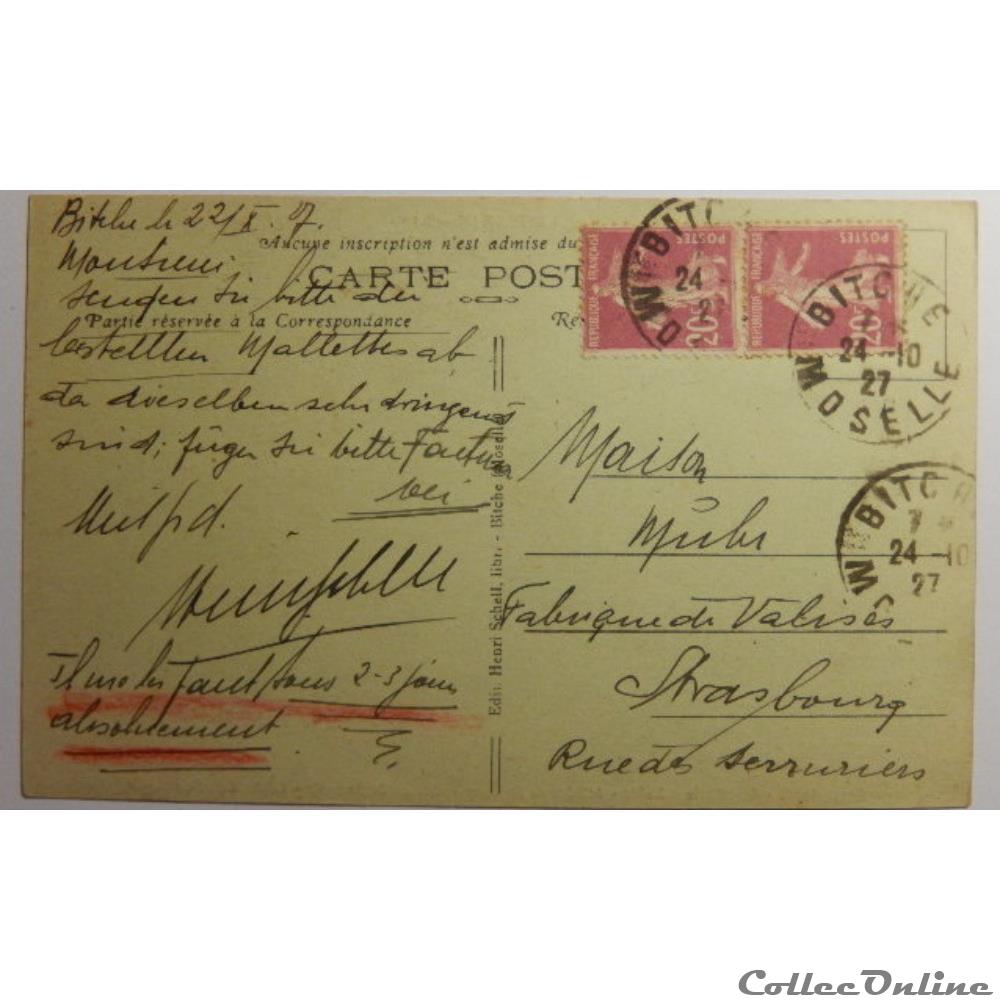 Bitche le 22/X. 27.
Aucune inscription n'est admise du
Monsieur
CARTE POST
senden Sie bitte die
Partie réservée à la Correspondance
bestellten Mallettes ab
da dieselben sehr dringend
sind; fügen Sie bitte Factura
bei
Il me les faut sous 2-3 jours
absolument
Edit. Henri Schell, libr. - Bitche (Moselle
REPUBLIQUE FRANÇAISE
POSTES
20c
REPUBLIQUE FRANÇAISE
POSTES
20c
BITC
24
2
BITCHE
24 -10
27
MOSELLE
BITCH
7
24 -10
27
Maison
Fabrique de Valises
Strasbourg
Rue des Serruriers
CollecOnline